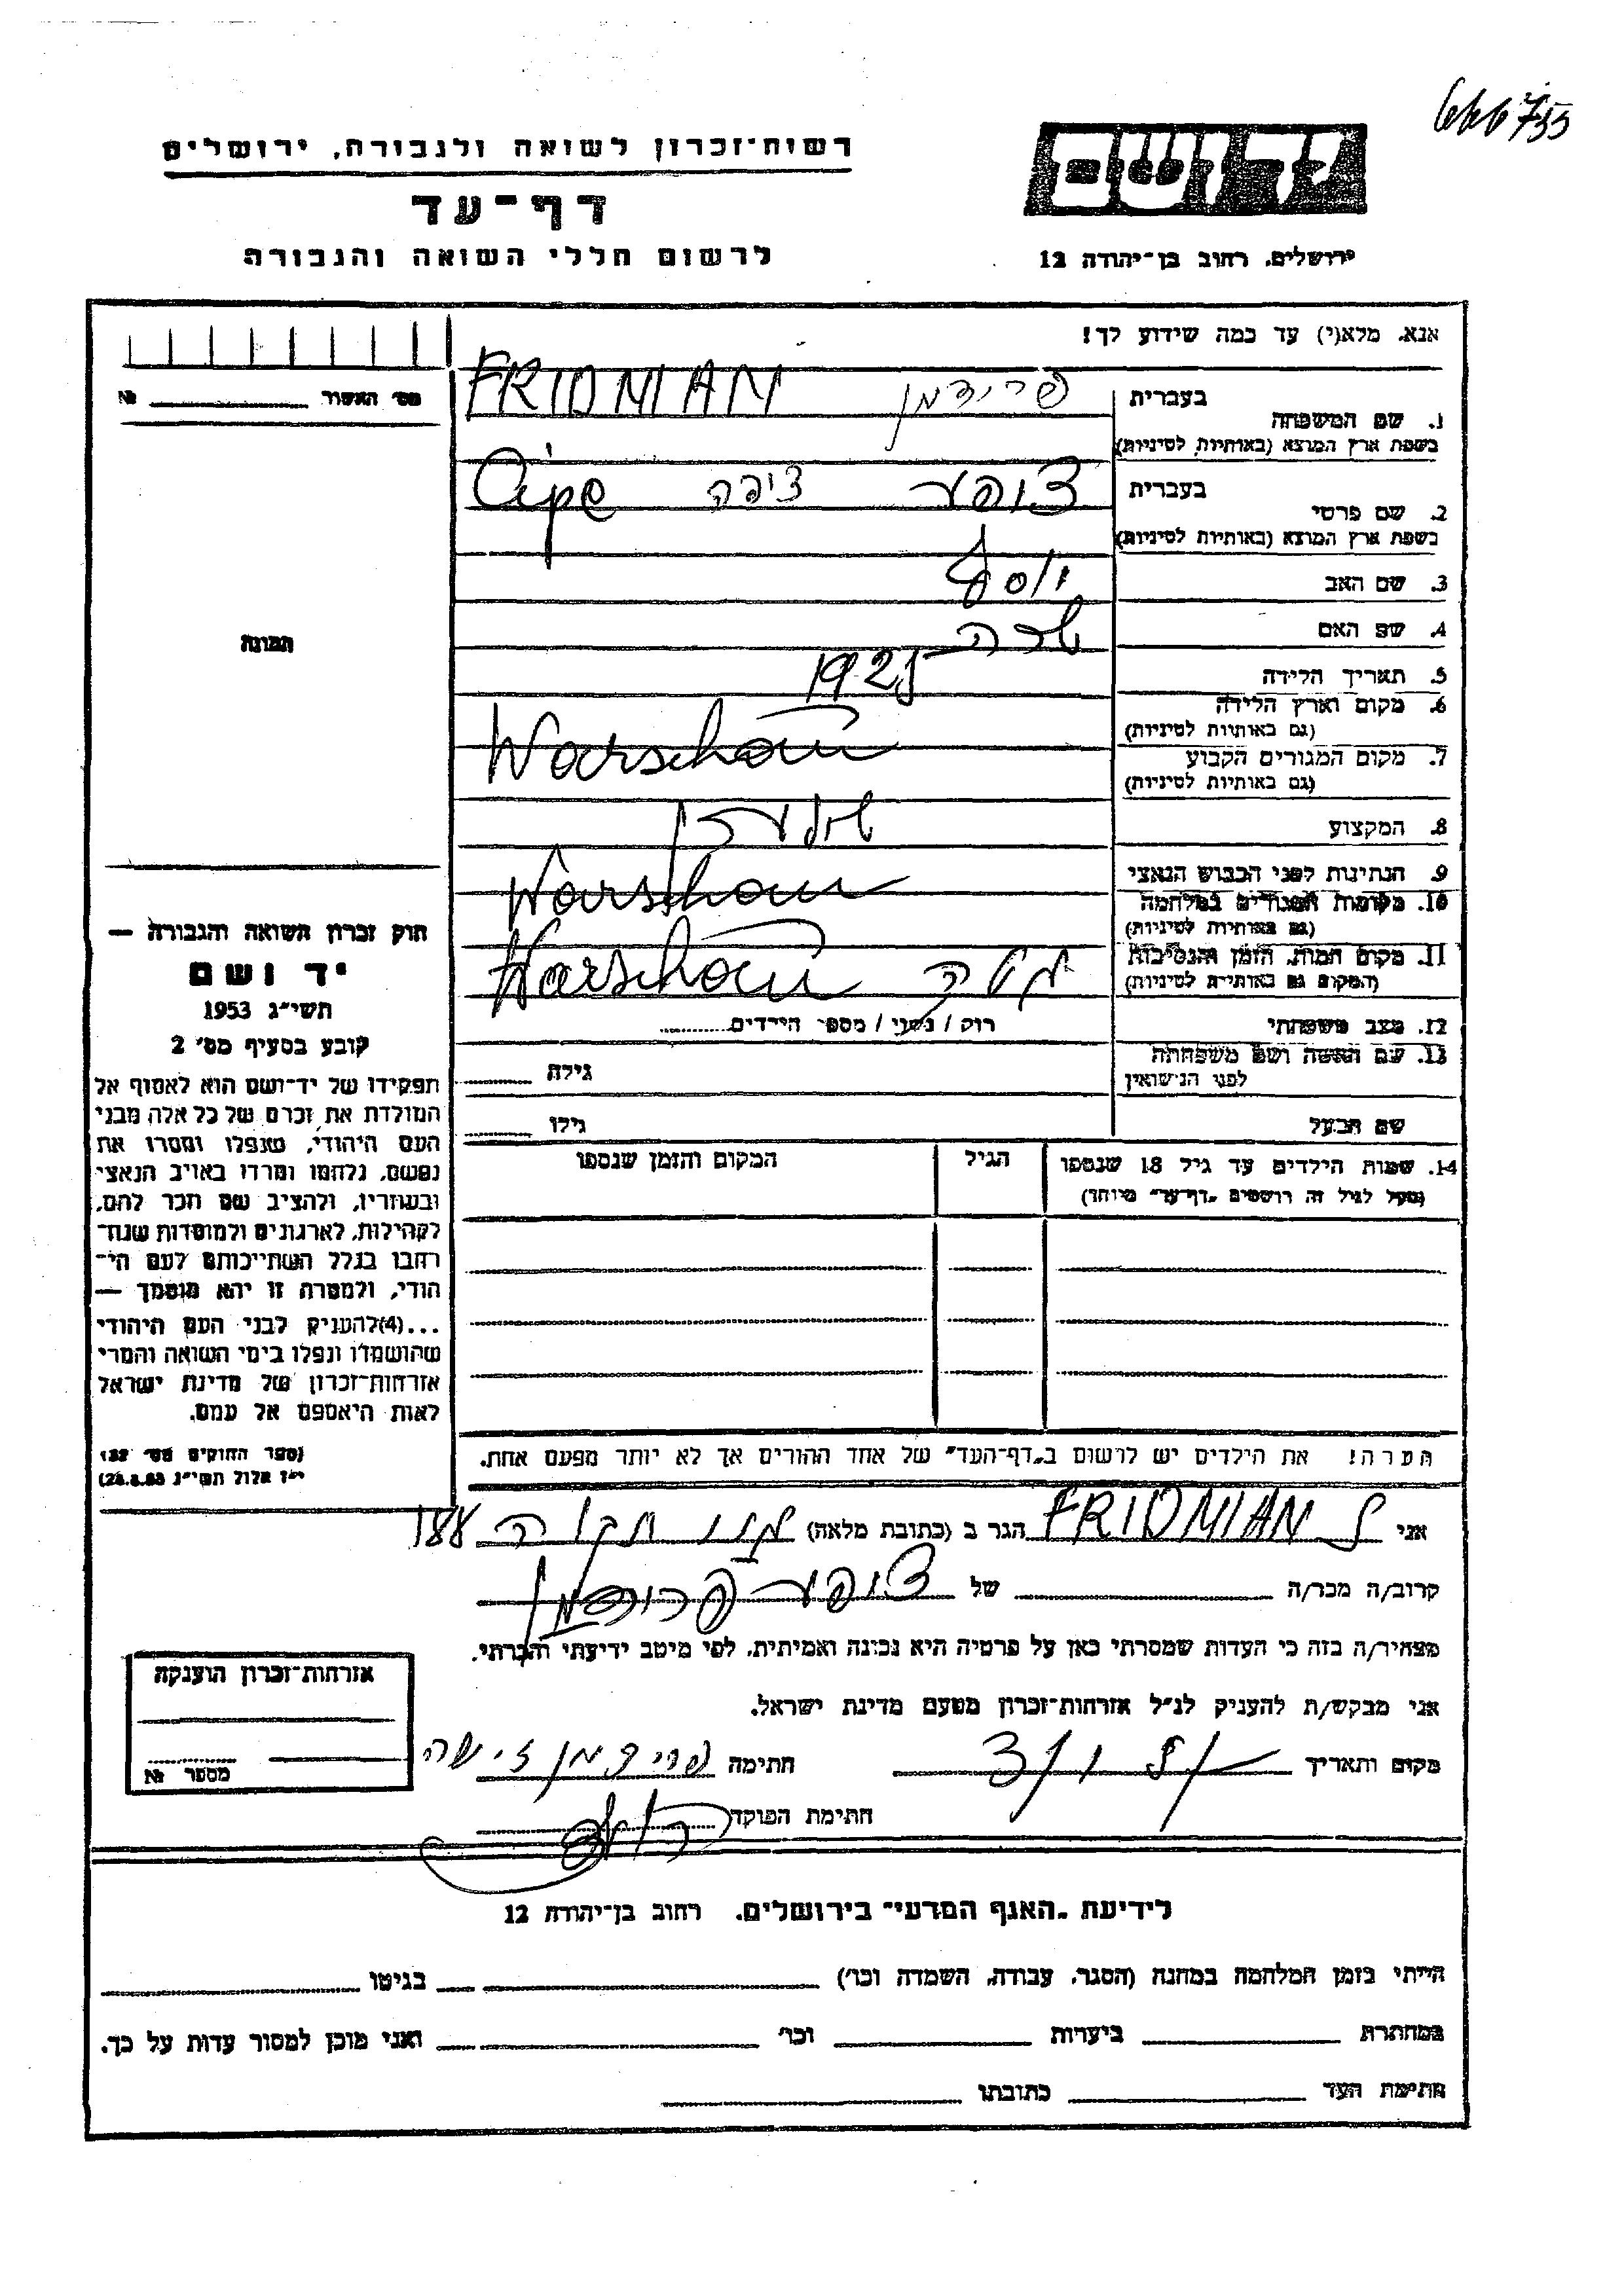 666755
יד ושם
ירושלים, רחוב בן־יהודה 12
רשות־זכרון לשואה ולגבורה, ירושלים
דף־עד
לרשום חללי השואה והגבורה
אנא, מלא(י) עד כמה שידוע לך!
מס׳ האשור № 
1. שם המשפחה בעברית פרידמן
בשפת ארץ המוצא (באותיות לסיניות) FRIDMAN
2. שם פרטי בעברית ציפע ציפה
בשפת ארץ המוצא (באותיות לסיניות) Cipe
3. שם האב יוסף
4. שם האם שרה
5. תאריך הלידה 1925
6. מקום וארץ הלידה
(גם באותיות לטיניות) Warschau
7. מקום המגורים הקבוע
(גם באותיות לטיניות)
8. המקצוע
9. הנתינות לפני הכבוש הנאצי
10. מקומות המגורים במלחמה
(גם באותיות לטיניות) Warschau
11. מקום המות, הזמן והנסיבות
(המקום גם באותיות לטיניות) Warschau
12. מצב משפחתי רוק / נשוי / מספר הילדים
13. שם האשה ושם משפחתה
לפני הנישואין גילה
שם הבעל גילו
14. שמות הילדים עד גיל 18 שנספו הגיל המקום והזמן שנספו
(מעל לגיל זה רושמים „דף־עד״ מיוחד)
הערה! את הילדים יש לרשום ב„דף־העד״ של אחד ההורים אך לא יותר מפעם אחת.
תמונה
חוק זכרון השואה והגבורה —
יד ושם
תשי״ג 1953
קובע בסעיף מס׳ 2
תפקידו של יד־ושם הוא לאסוף אל
המולדת את זכרם של כל אלה מבני
העם היהודי, שנפלו ומסרו את
נפשם, נלחמו ומרדו באויב הנאצי
ובעוזריו, ולהציב שם וזכר להם,
לקהילות, לארגונים ולמוסדות שנח־
רחבו בגלל השתייכותם לעם הי־
הודי, ולמטרה זו יהא מוסמך —
...(4)להעניק לבני העם היהודי
שהושמדו ונפלו בימי השואה והמרי
אזרחות־זכרון של מדינת ישראל
לאות היאספם אל עמם.
(ספר החוקים מס׳ 132
י״ז אלול תשי״ג 28.8.53)
אני FRIDMAN הגר ב (כתובת מלאה) 188
קרוב/ה מכר/ה של ציפע פרידמן
מצהיר/ה בזה כי העדות שמסרתי כאן על פרטיה היא נכונה ואמיתית, לפי מיטב ידיעתי והכרתי.
אני מבקש/ת להעניק לנ״ל אזרחות־זכרון מטעם מדינת ישראל.
מקום ותאריך חתימה פרידמן זישה
חתימת הפוקד
אזרחות־זכרון הוענקה
מספר №
לידיעת „האגף המדעי״ בירושלים, רחוב בן־יהודה 12
הייתי בזמן המלחמה במחנה (הסגר, עבודה, השמדה וכו׳) בגיטו
במחתרת ביערות וכו׳ ואני מוכן למסור עדות על כך.
חתימת העד כתובתו